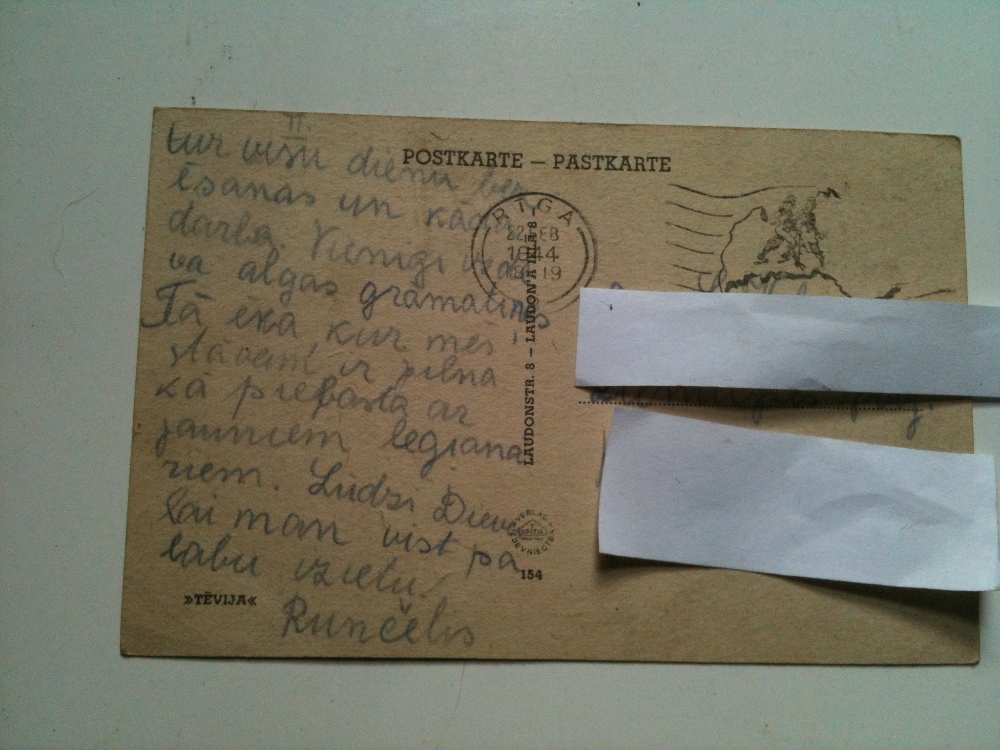 II.
tur visu dienu bez
ēsanas un kāda
darba. Vienīgi
va algas grāmatiņas
Tā ēka kur mēs
stāvam ir pilna
kā piebāsta ar
jauniem legiona
riem. Lūdzi Dievu
lai man vist pa
labu izietu.
Runčelis
»TĒVIJA«
POSTKARTE — PASTKARTE
RIGA
22 FEB
1944
18-19
LAUDONSTR. 8 — LAUDON'A IELA 8
VERLAG
154